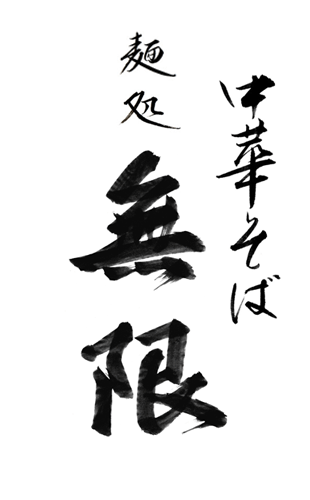 中華そば
麺処
無限